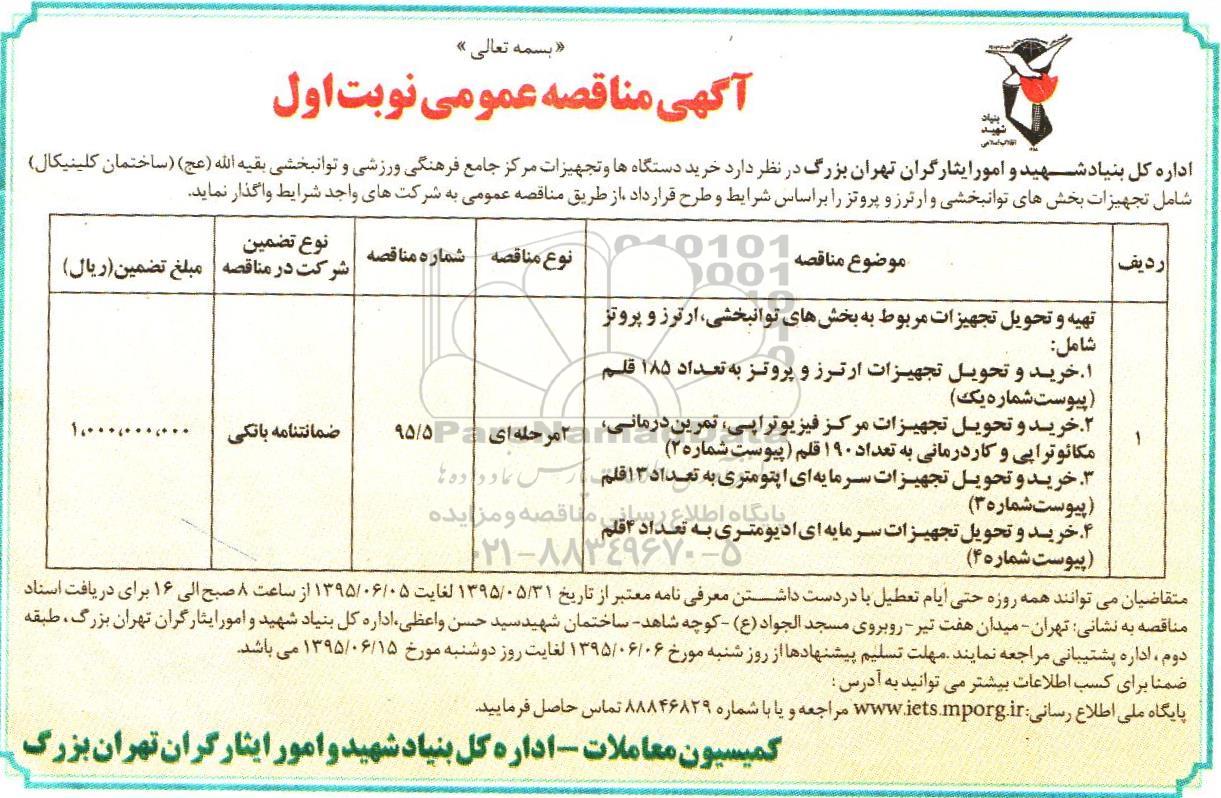 «بسمه تعالی»
آگهی مناقصه عمومی نوبت اول
بنیاد
شهید
انقلاب اسلامی
اداره کل بنیاد شهید و امور ایثارگران تهران بزرگ در نظر دارد خرید دستگاه ها وتجهیزات مرکز جامع فرهنگی ورزشی و توانبخشی بقیه الله (عج) (ساختمان کلینیکال)
شامل تجهیزات بخش های توانبخشی و ارترز و پروتز را براساس شرایط و طرح قرارداد ،از طریق مناقصه عمومی به شرکت های واجد شرایط واگذار نماید.
ردیف
موضوع مناقصه
نوع مناقصه
شماره مناقصه
نوع تضمین
شرکت در مناقصه
مبلغ تضمین(ریال)
۱
تهیه و تحویل تجهیزات مربوط به بخش های توانبخشی، ارترز و پروتز
شامل:
۱.خرید و تحویل تجهیزات ارترز و پروتز به تعداد ۱۸۵ قلم
(پیوست شماره یک)
۲.خرید و تحویل تجهیزات مرکز فیزیوتراپی، تمرین درمانی،
مکانوتراپی و کاردرمانی به تعداد ۱۹۰ قلم (پیوست شماره۲)
۳.خرید و تحویل تجهیزات سرمایه ای اپتومتری به تعداد ۱۳قلم
(پیوست شماره۳)
۴.خرید و تحویل تجهیزات سرمایه ای ادیومتری به تعداد ۴قلم
(پیوست شماره۴)
۲مرحله ای
۹۵/۵
ضمانتنامه بانکی
۱،۰۰۰،۰۰۰،۰۰۰
متقاضیان می توانند همه روزه حتی ایام تعطیل با دردست داشتن معرفی نامه معتبر از تاریخ ۱۳۹۵/۰۵/۳۱ لغایت ۱۳۹۵/۰۶/۰۵ از ساعت ۸ صبح الی ۱۶ برای دریافت اسناد
مناقصه به نشانی: تهران- میدان هفت تیر -روبروی مسجد الجواد (ع) -کوچه شاهد- ساختمان شهیدسید حسن واعظی،اداره کل بنیاد شهید و امورایثارگران تهران بزرگ ، طبقه
دوم ، اداره پشتیبانی مراجعه نمایند .مهلت تسلیم پیشنهادها از روز شنبه مورخ ۱۳۹۵/۰۶/۰۶ لغایت روز دوشنبه مورخ ۱۳۹۵/۰۶/۱۵ می باشد.
ضمنا برای کسب اطلاعات بیشتر می توانید به آدرس :
پایگاه ملی اطلاع رسانی:www.iets.mporg.ir مراجعه و یا با شماره ۸۸۸۴۶۸۲۹ تماس حاصل فرمایید.
کمیسیون معاملات - اداره کل بنیاد شهید و امور ایثارگران تهران بزرگ
ParsNamadData
پایگاه اطلاع رسانی مناقصه و مزایده
۰۲۱-۸۸۳۴۹۶۷۰-۵